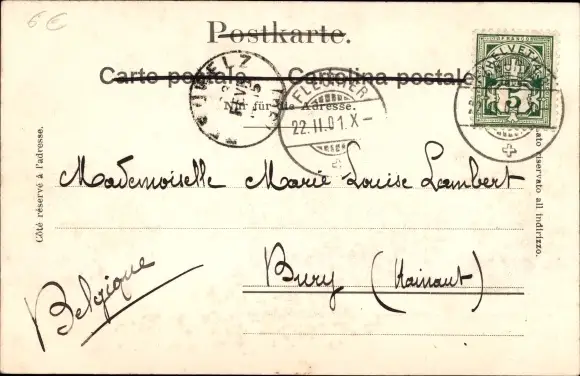 6 €
Postkarte.
Carte postale. Cartolina postale.
Nur für die Adresse.
HELVETIA
5
FLEURIER
22.II.01.X-
Côté réservé à l'adresse.
Lato riservato all indirizzo.
Mademoiselle Marie Louise Lambert
Bury (Hainaut)
Belgique